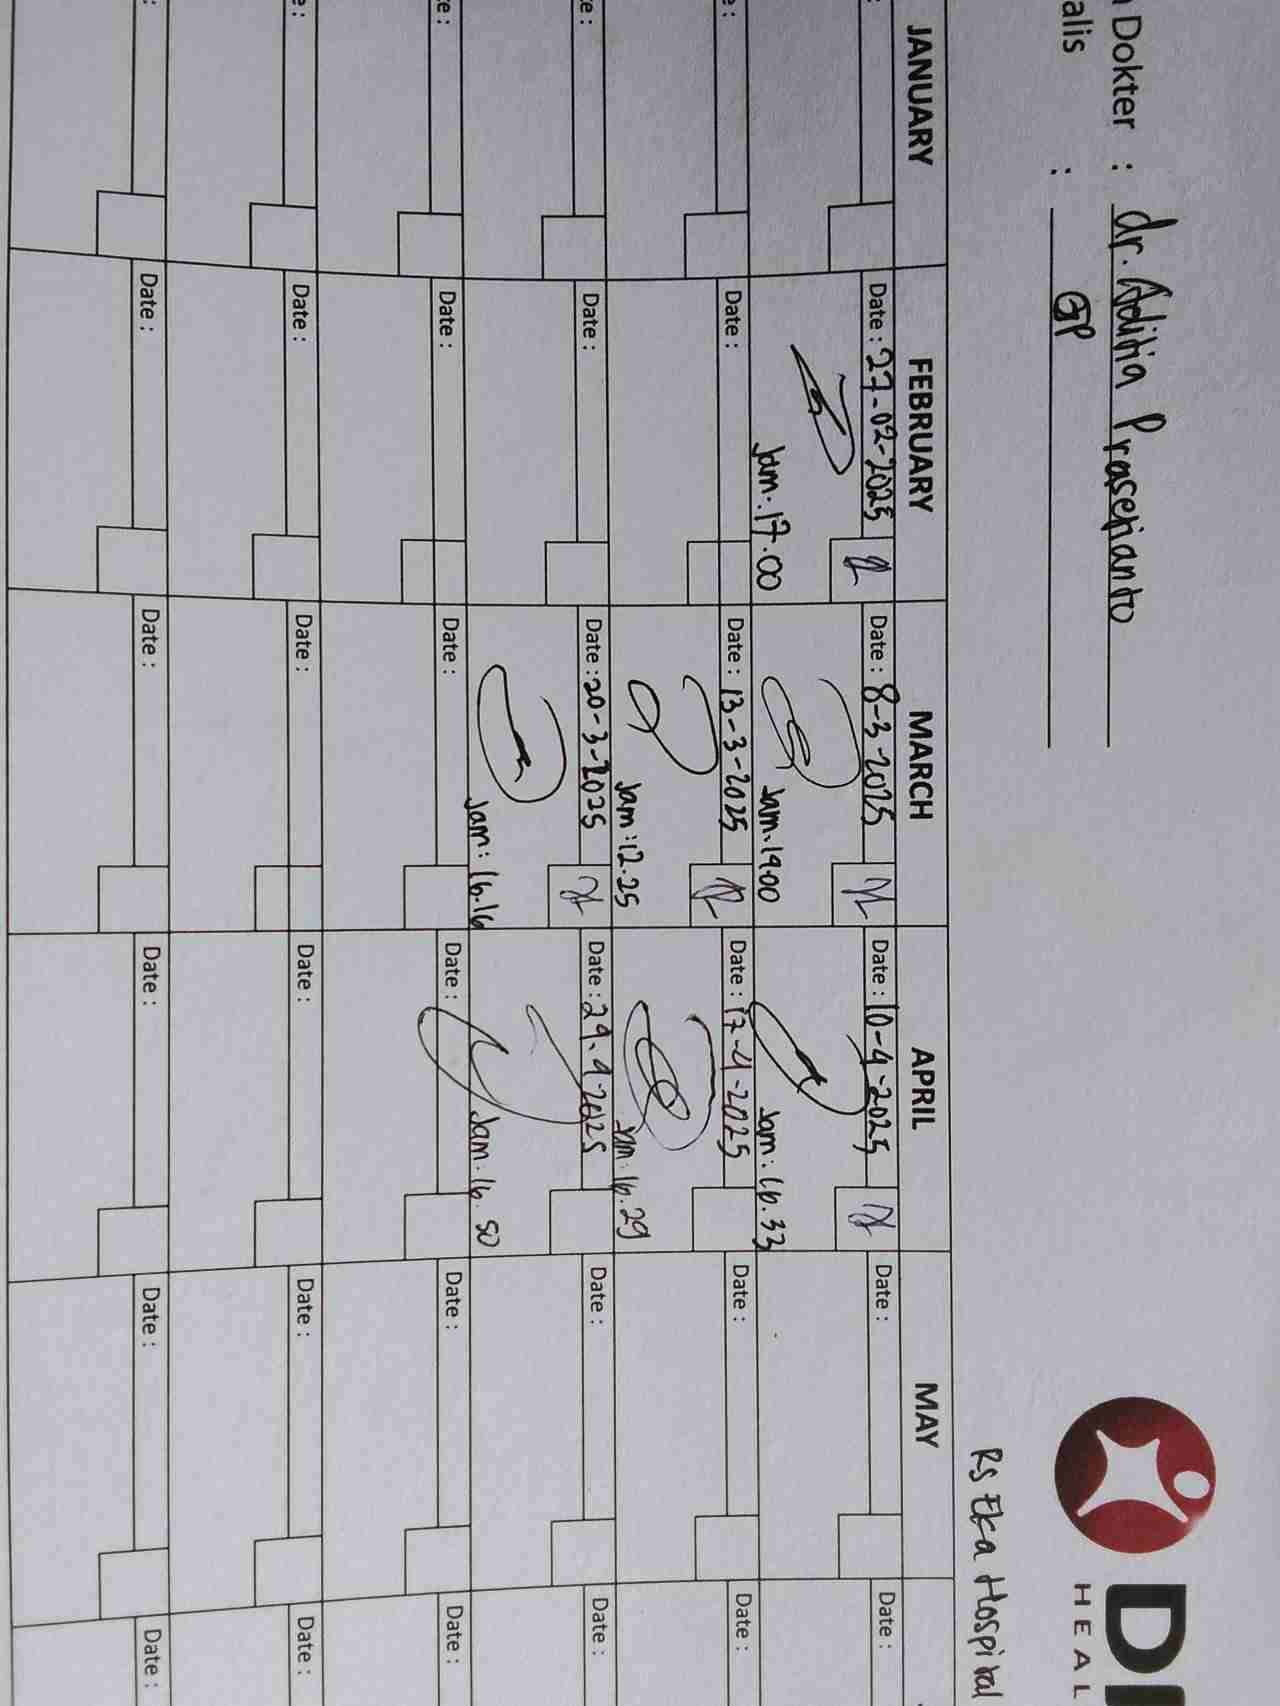 Dokter : dr. Aditia Prasetianto
alis : GP
RS Eka Hospital
HEAL
JANUARY FEBRUARY MARCH APRIL MAY
Date : 27-02-2025 Date : 8-3-2025 Date : 10-4-2025 Date : Date :
Jam : 17.00 Jam : 19.00 Jam : 16.33
Date : Date : 13-3-2025 Date : 17-4-2025 Date : Date :
Jam : 12.25 Jam : 16.29
Date : Date : 20-3-2025 Date : 29-4-2025 Date : Date :
Jam : 16.16 Jam : 16.50
Date : Date : Date : Date : Date :
Date : Date : Date : Date : Date :
Date : Date : Date : Date : Date :